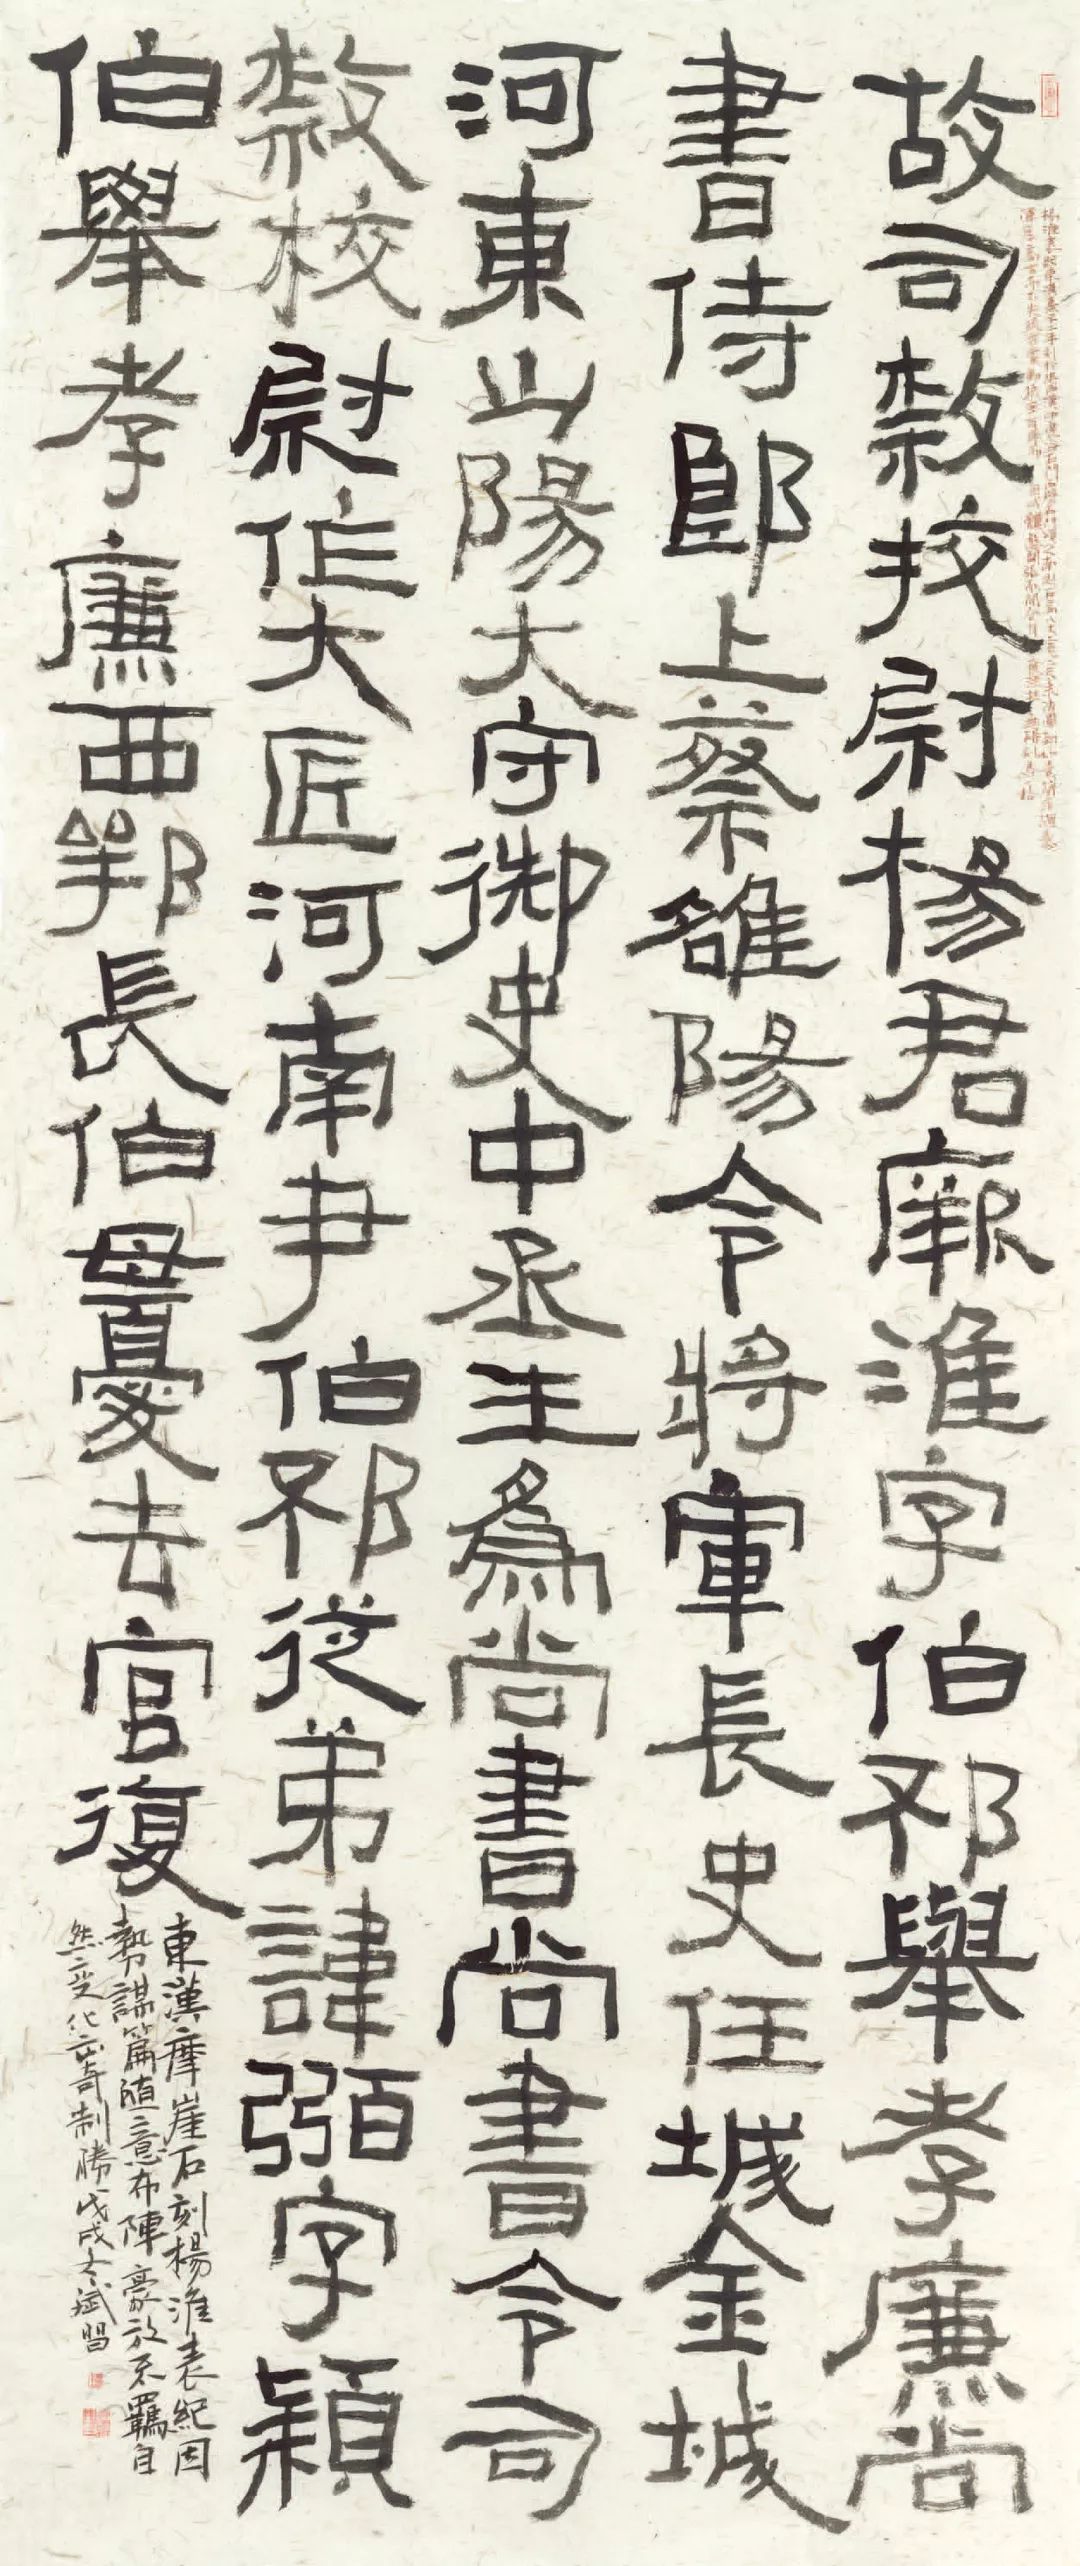 故司隸挍尉楊君厥淮字伯邳舉孝廉尚
書侍郎上蔡雒陽令將軍長史任城金城
河東山陽大守御史中丞主為尚書尚書令司
隸校尉作大匠河南尹伯邳從弟諱弼字穎
伯舉孝廉西鄂長伯母憂去官復
東漢摩崖石刻楊淮表紀因
勢謀篇隨意布陣豪放不羈自
然變化出奇制勝戊戌